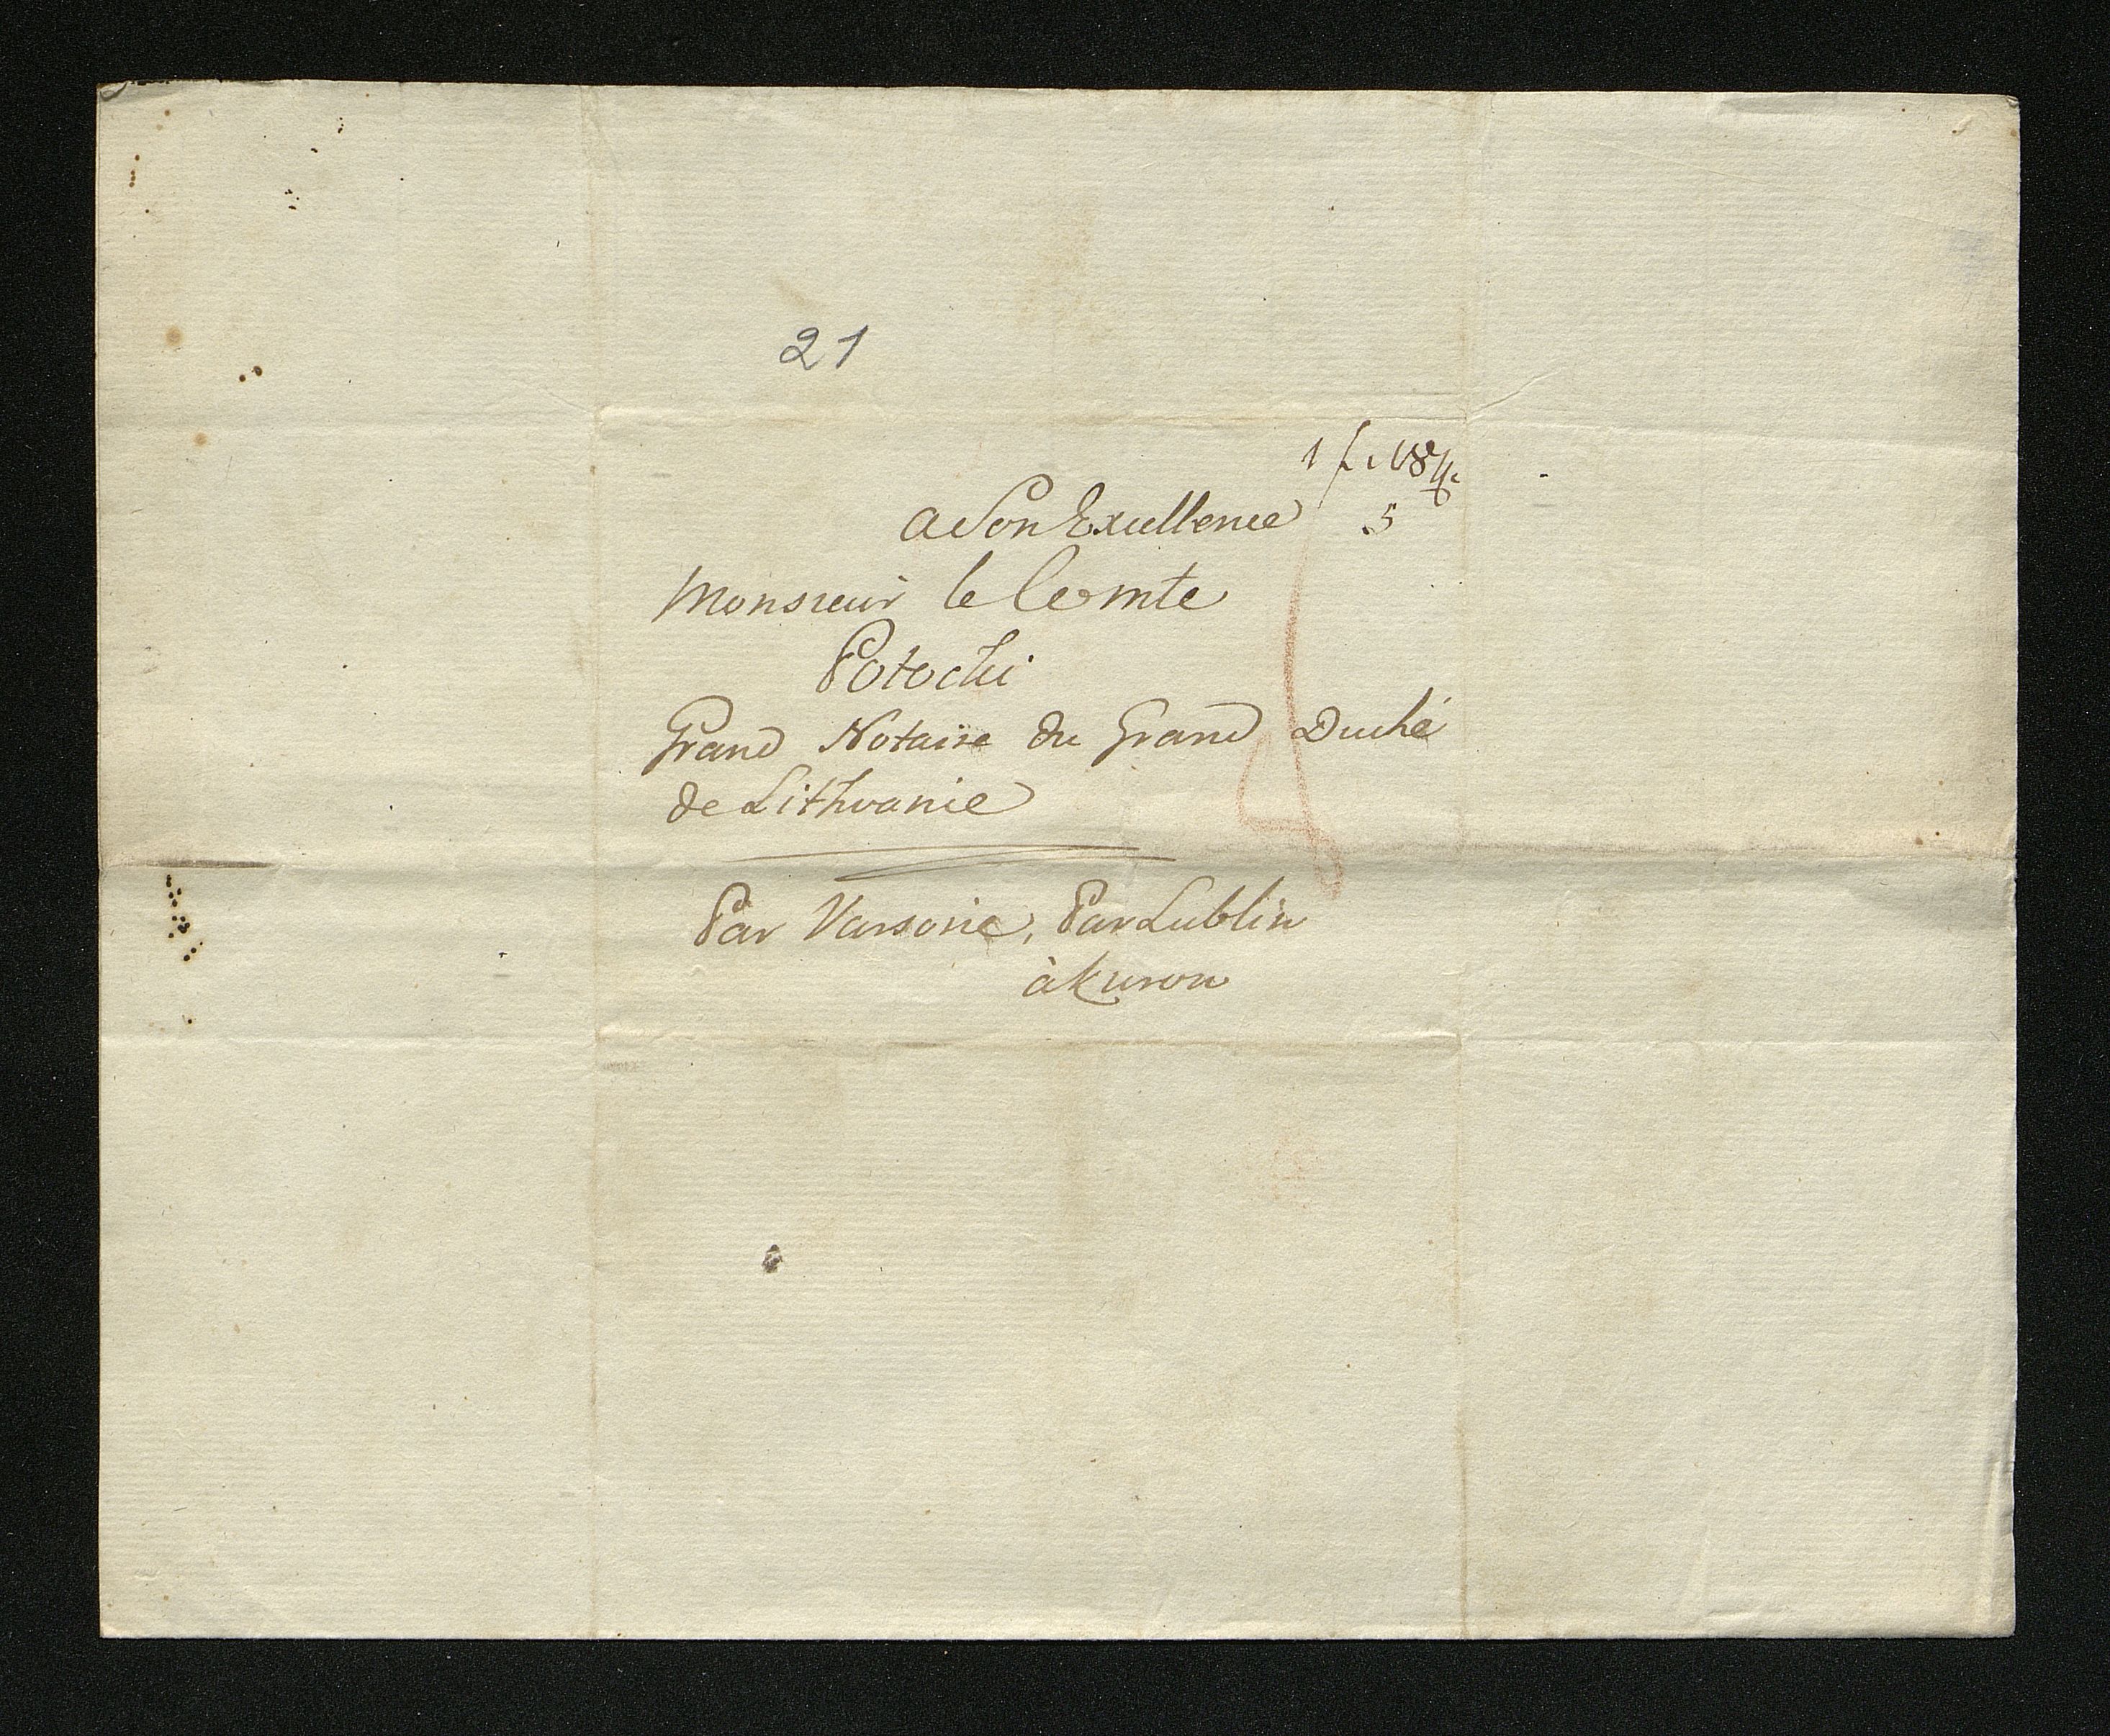 21
1 f. 18
5
a Son Exellence
Monsieur le Comte
Potocki
Grand Notaire du Grand Duché
de Lithvanie
Par Varsovie, Par Lublin
à Kurow